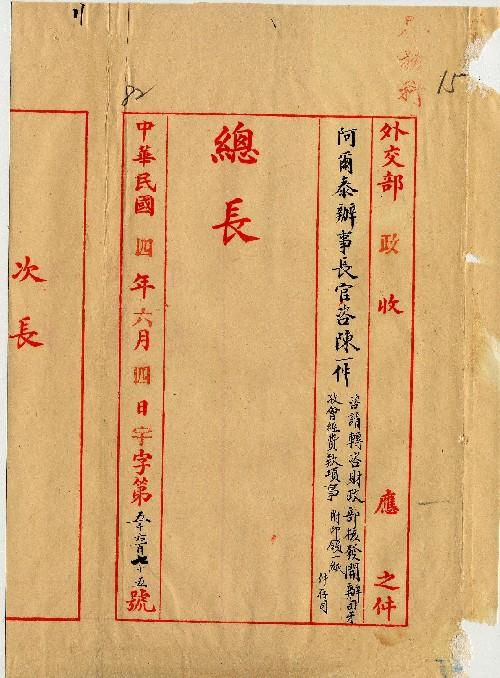 15
外交部 政 收 應 之件
阿爾泰辦事長官咨陳一件
咨請轉咨財政部核發開辦
政會經費款項事 附印領一紙
件存司
總長
中華民國四年六月四日字字第 號
82
次長